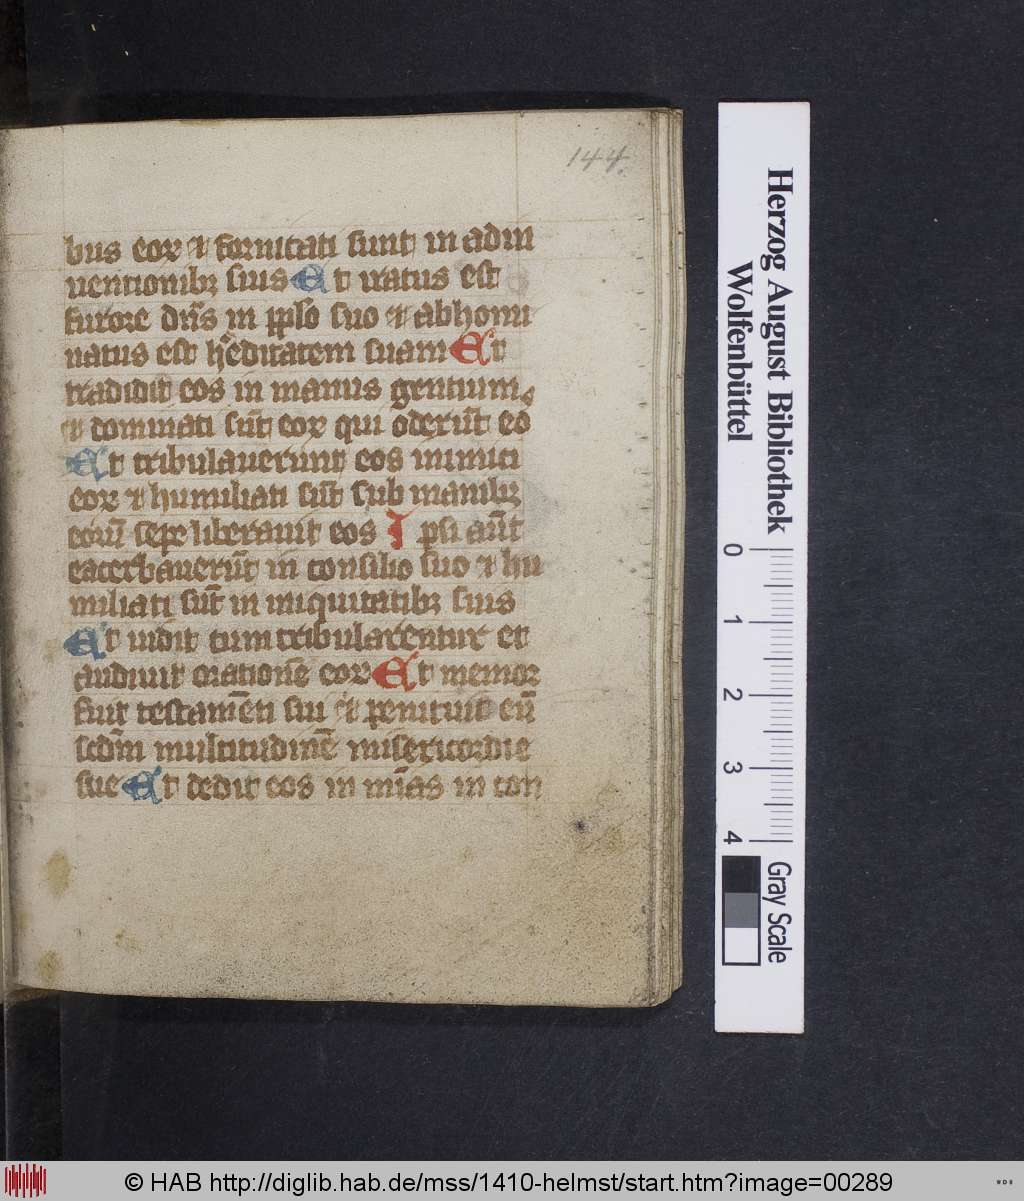 144.
bus eoꝝ ⁊ fornicati sunt in adin
uentionibꝫ suis Et iratus est
furore dn̄s in ppl̄o suo ⁊ abhomi
natus est h̓editatem suam Et
tradidit eos in manus gentium
⁊ dominati sūt eoꝝ qui oderūt eo
Et tribulauerunt eos inimici
eoꝝ ⁊ humiliati sūt sub manibꝫ
eorū sepe liberauit eos Ipsi aūt
exacerbauerūt in consilio suo ⁊ hu
miliati sūt in iniquitatibꝫ suis
Et uidit cum tribularentur et
audiuit orationē eoꝝ Et memor
fuit testamēti sui ⁊ penituit eū
scdm̄ multitudinē misericordie
sue Et dedit eos in mīas in con
Herzog August Bibliothek
Wolfenbüttel
0 1 2 3 4
Gray Scale
© HAB http://diglib.hab.de/mss/1410-helmst/start.htm?image=00289